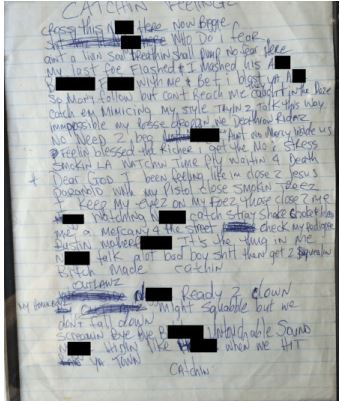 CATCHIN FEELINGZ
crossy this Here Now Before
Who Do i fear
aint a lion Soul Breathin shall pump No fear Here
My last foe Flashed & I Mashed his A
with me & Bet i blast yo A
So Many follow but can't Reach me caught in the Daze
catch em Mimicing my style Tryin 2 Talk this way
impossible my vesse we Deathrow Riderz
No Need 2 Aint no Mercy inside us
Feelin blessed tha Richer i get the No i Stress
Smokin LA Watchin Time Fly Waitin 4 Death
* Dear God I been feeling like im close 2 Jesus
paranoid with my Pistol close Smokin Treez
I Keep My eyez on My foez those close 2 me
Watching catch Stray Shots
me a Mercany 4 the street check my
Bustin motherf It's the thug in me
talk alot bad boy shit then get 2
Bitch Made catchin
outlawz Ready 2 clown
might squabble but we
don't fall down
screamin Bye Bye Untouchable Sound
like when we HIT
Ya Town
Catchin